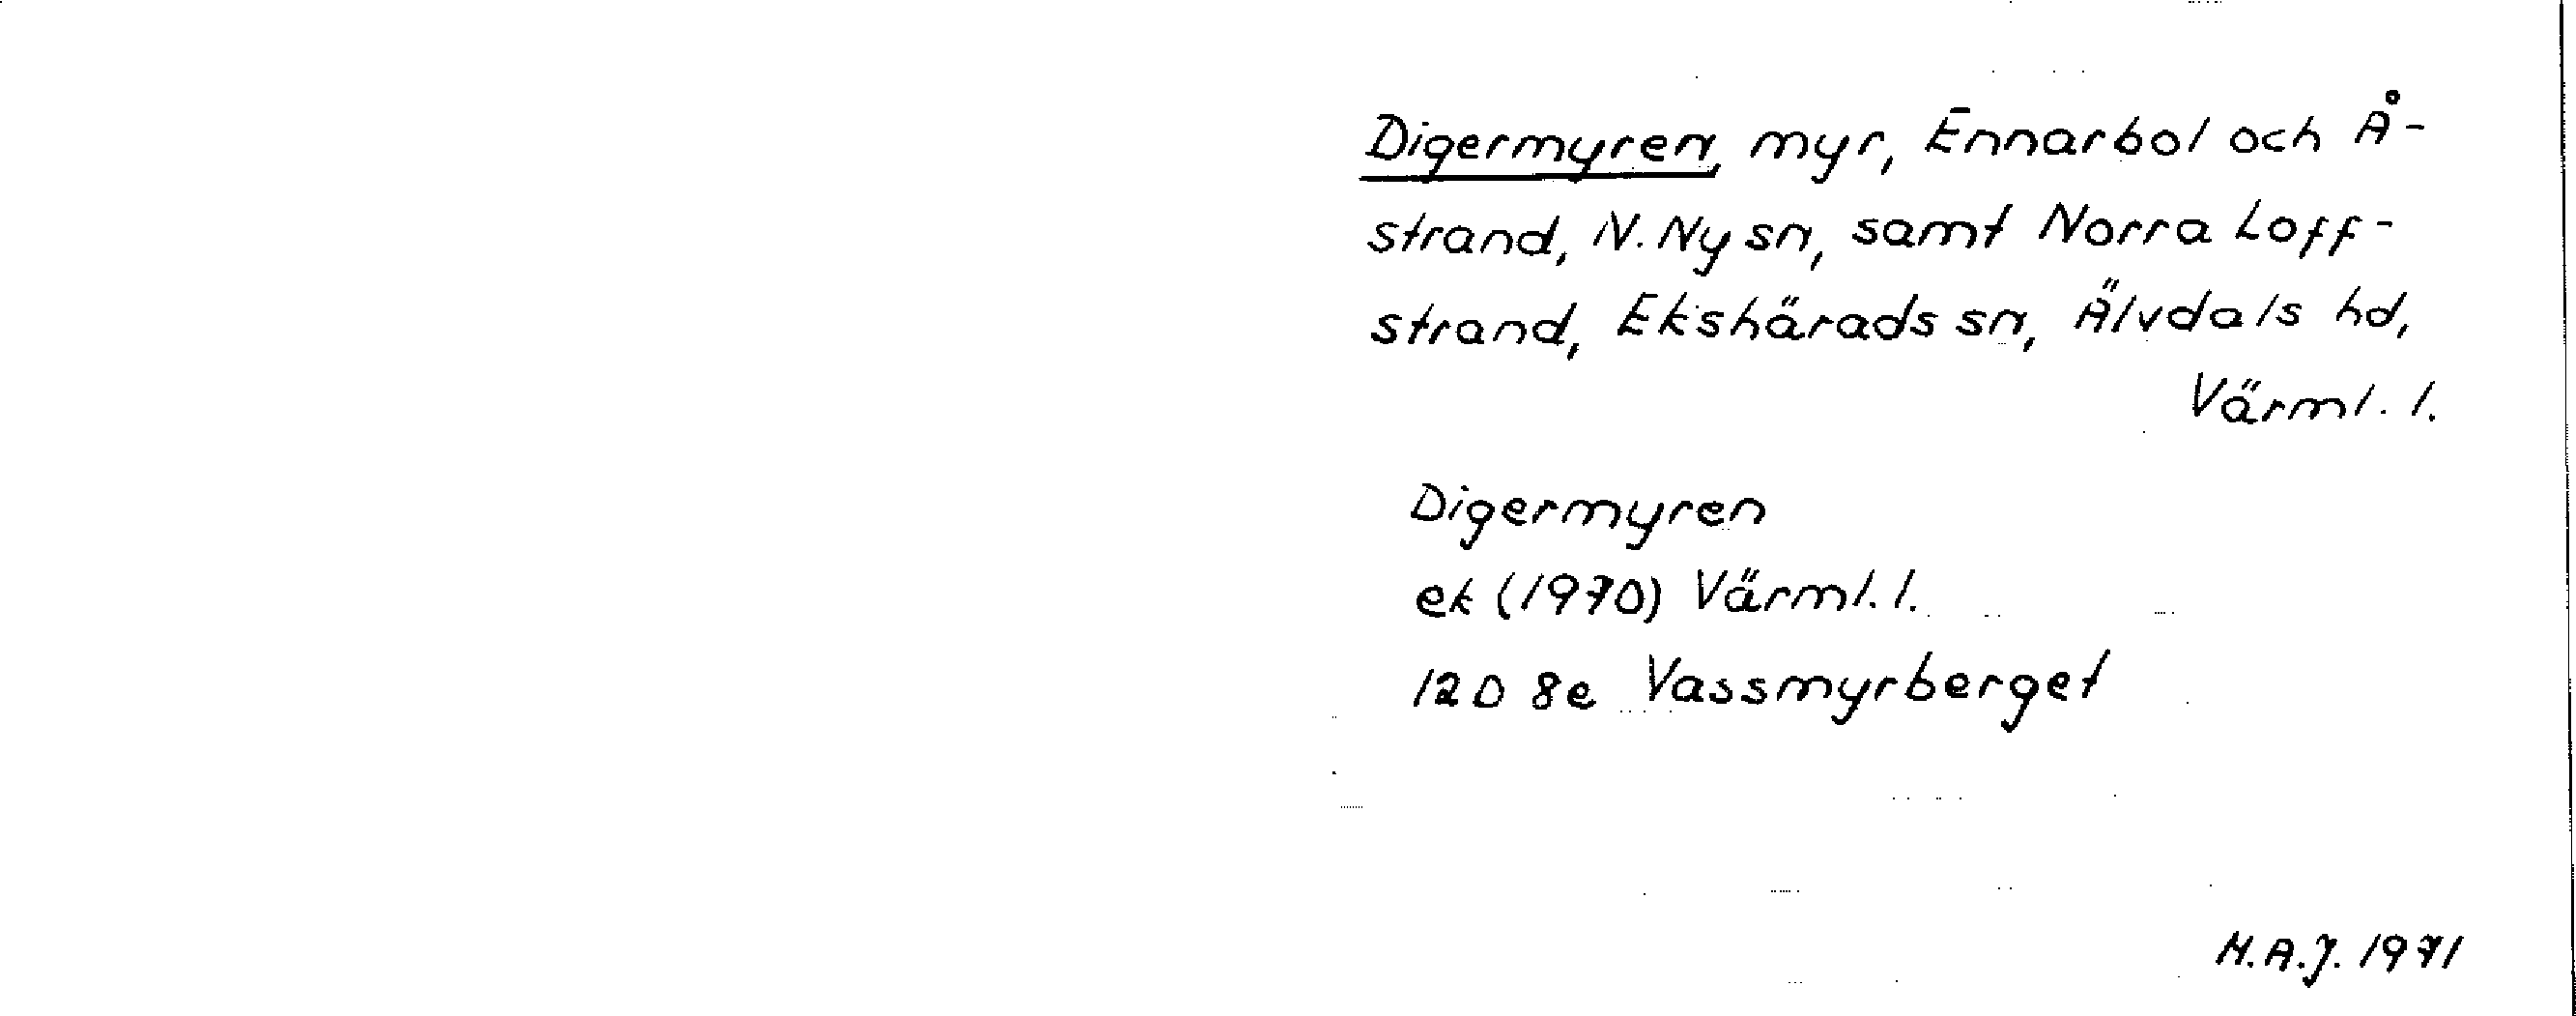 Digermyren, myr, Ennarbol och Å-
strand, N. Ny sn, samt Norra Loff-
strand, Ekshärads sn, Älvdals hd,
Värml. l.
Digermyren
ek (1970) Värml. l.
12D 8e Vassmyrberget
M.A.J. 1971